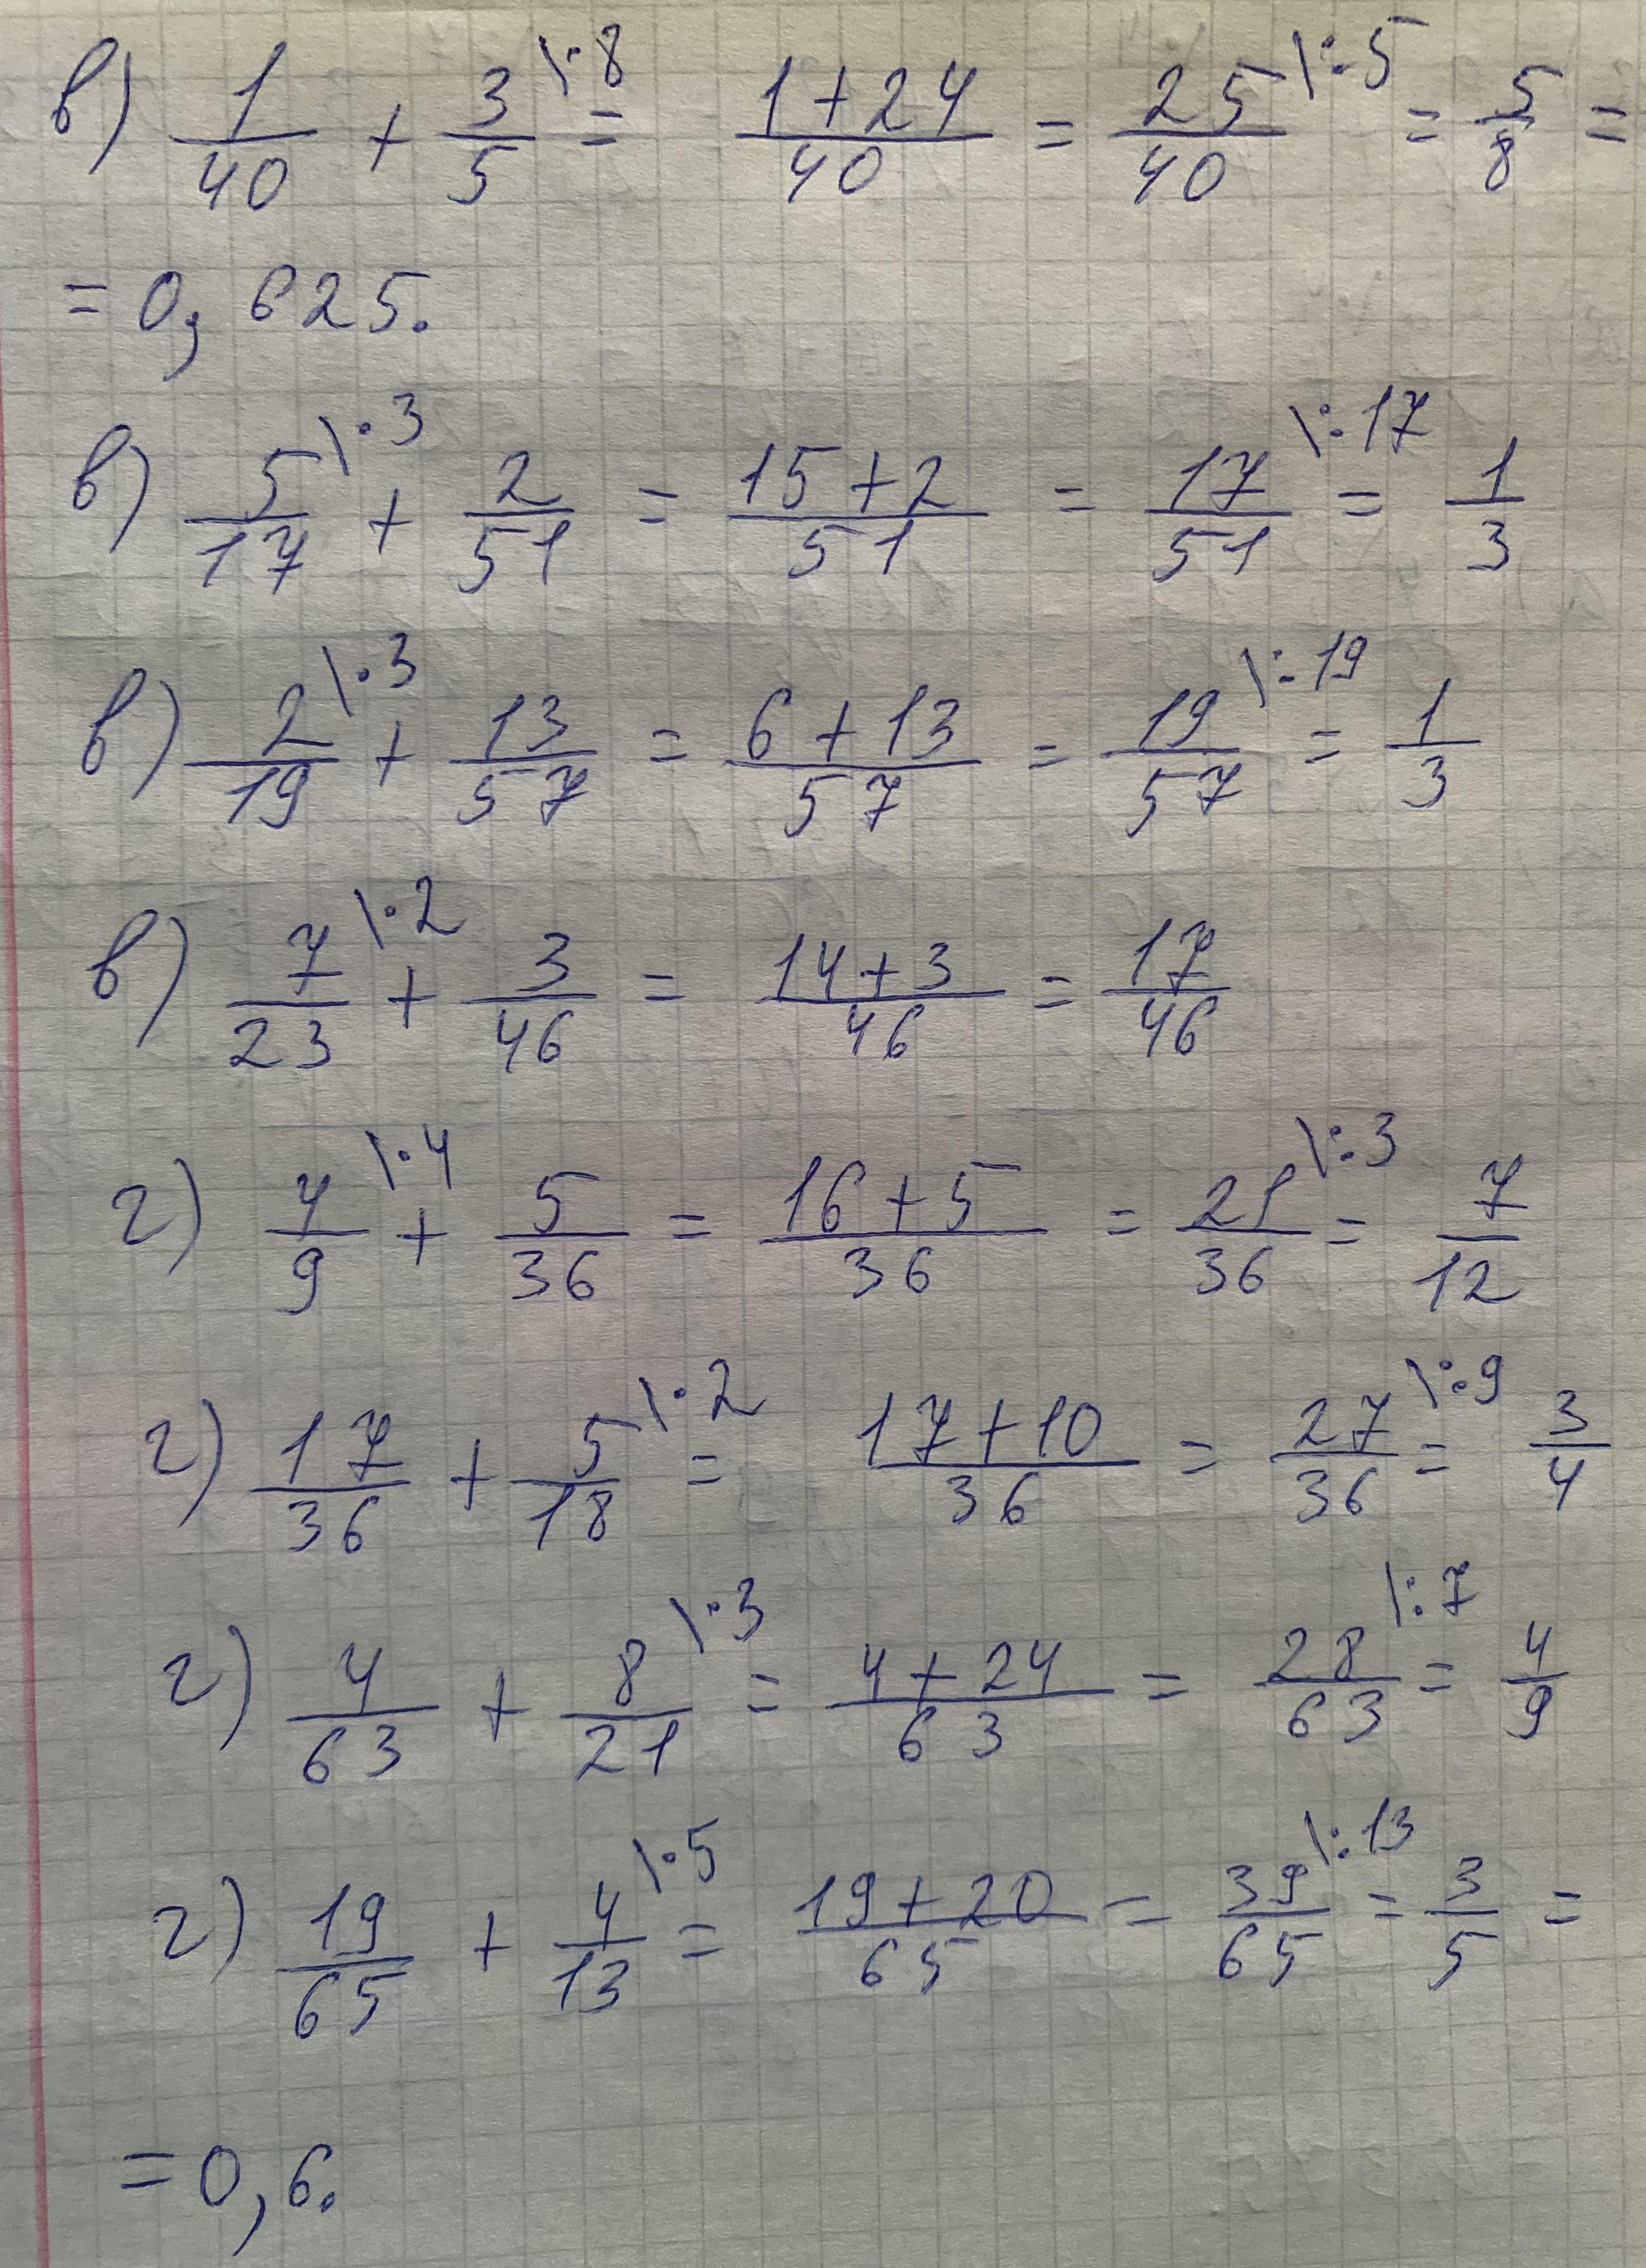 в) 1/40 + 3/5 \·8 = (1+24)/40 = 25/40 \:5 = 5/8 =
= 0,625.
в) 5/17 \·3 + 2/51 = (15+2)/51 = 17/51 \:17 = 1/3
в) 2/19 \·3 + 13/57 = (6+13)/57 = 19/57 \:19 = 1/3
в) 7/23 \·2 + 3/46 = (14+3)/46 = 17/46
г) 4/9 \·4 + 5/36 = (16+5)/36 = 21/36 \:3 = 7/12
г) 17/36 + 5/18 \·2 = (17+10)/36 = 27/36 \:9 = 3/4
г) 4/63 + 8/21 \·3 = (4+24)/63 = 28/63 \:7 = 4/9
г) 19/65 + 4/13 \·5 = (19+20)/65 = 39/65 \:13 = 3/5 =
= 0,6.